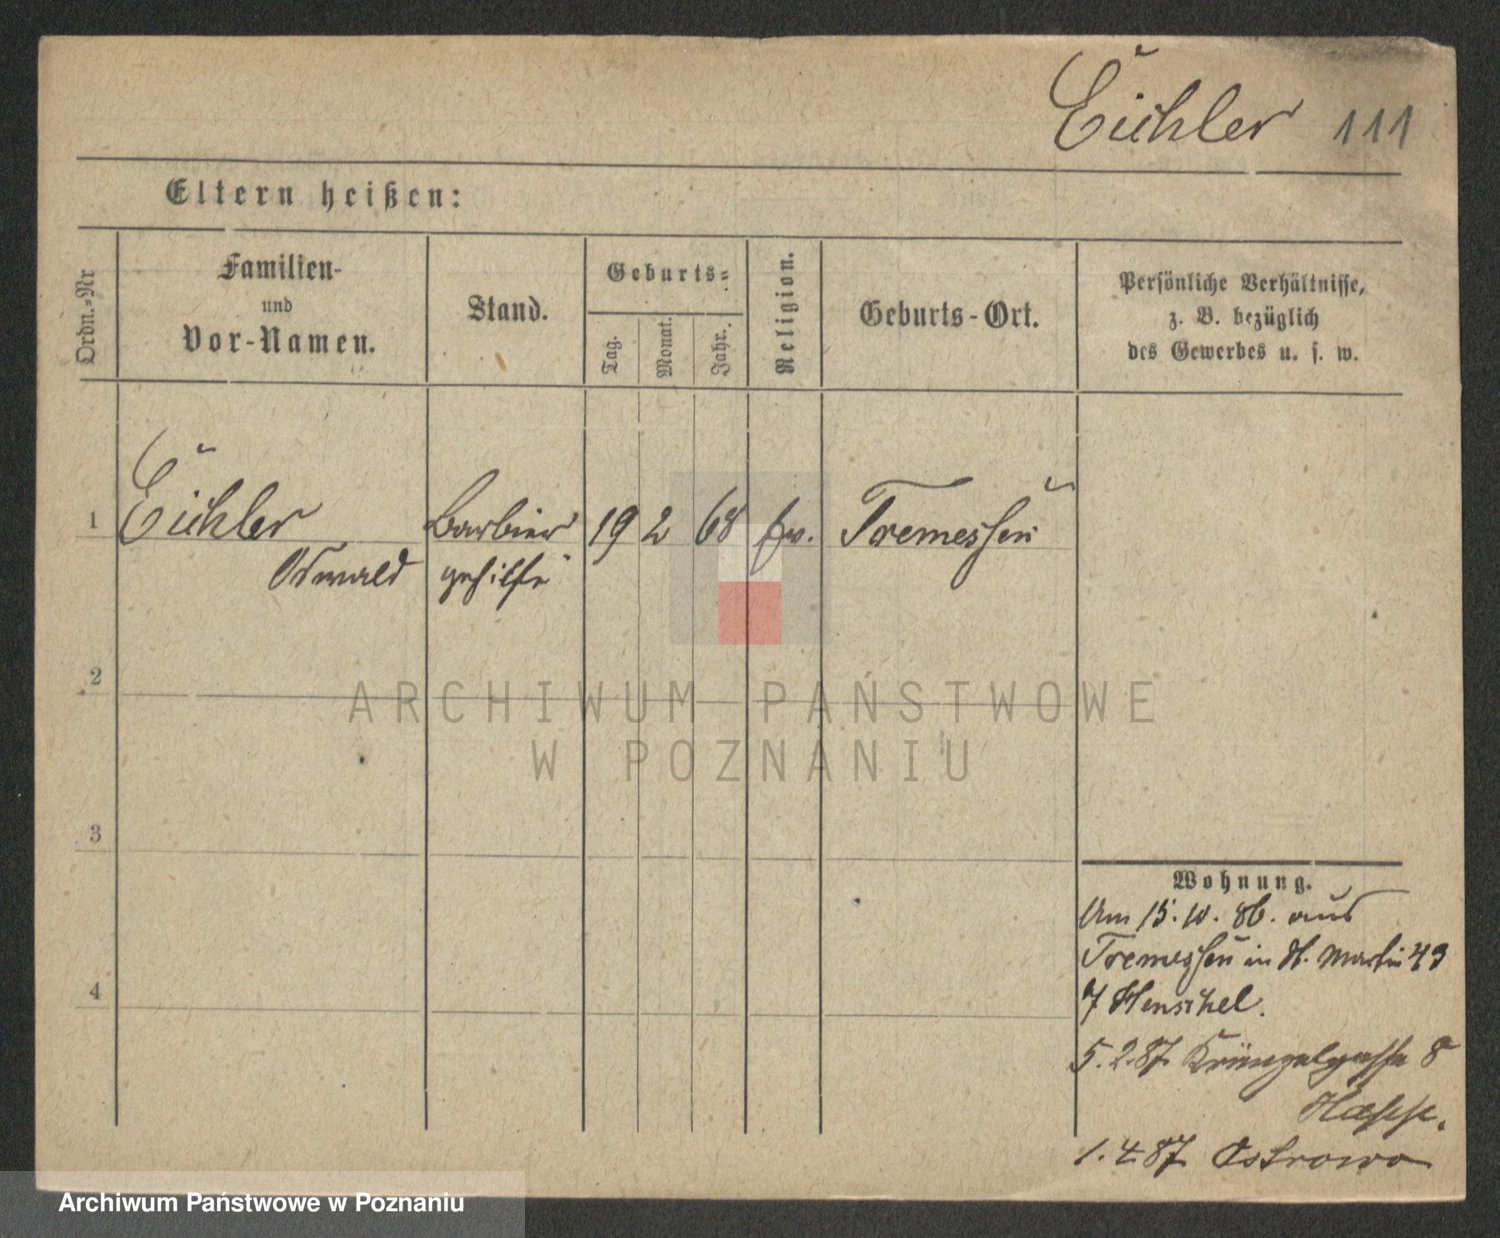 Eichler 111
Eltern heißen:
Ordn.-Nr
Familien-
und
Vor-Namen.
Stand.
Geburts-
Tag.
Monat.
Jahr.
Religion.
Geburts-Ort.
Persönliche Verhältnisse,
z. B. bezüglich
des Gewerbes u. s. w.
1 Eichler Barbier 19 2 68 ev. Tremessen
Oswald gehilfe
2
3
4
Wohnung.
Am 15. 10. 86. aus
Tremessen in St. Martin 43
Henschel.
5. 2. 87. 8
1. 4. 87. Ostrowo
ARCHIWUM PAŃSTWOWE
W POZNANIU
Archiwum Państwowe w Poznaniu